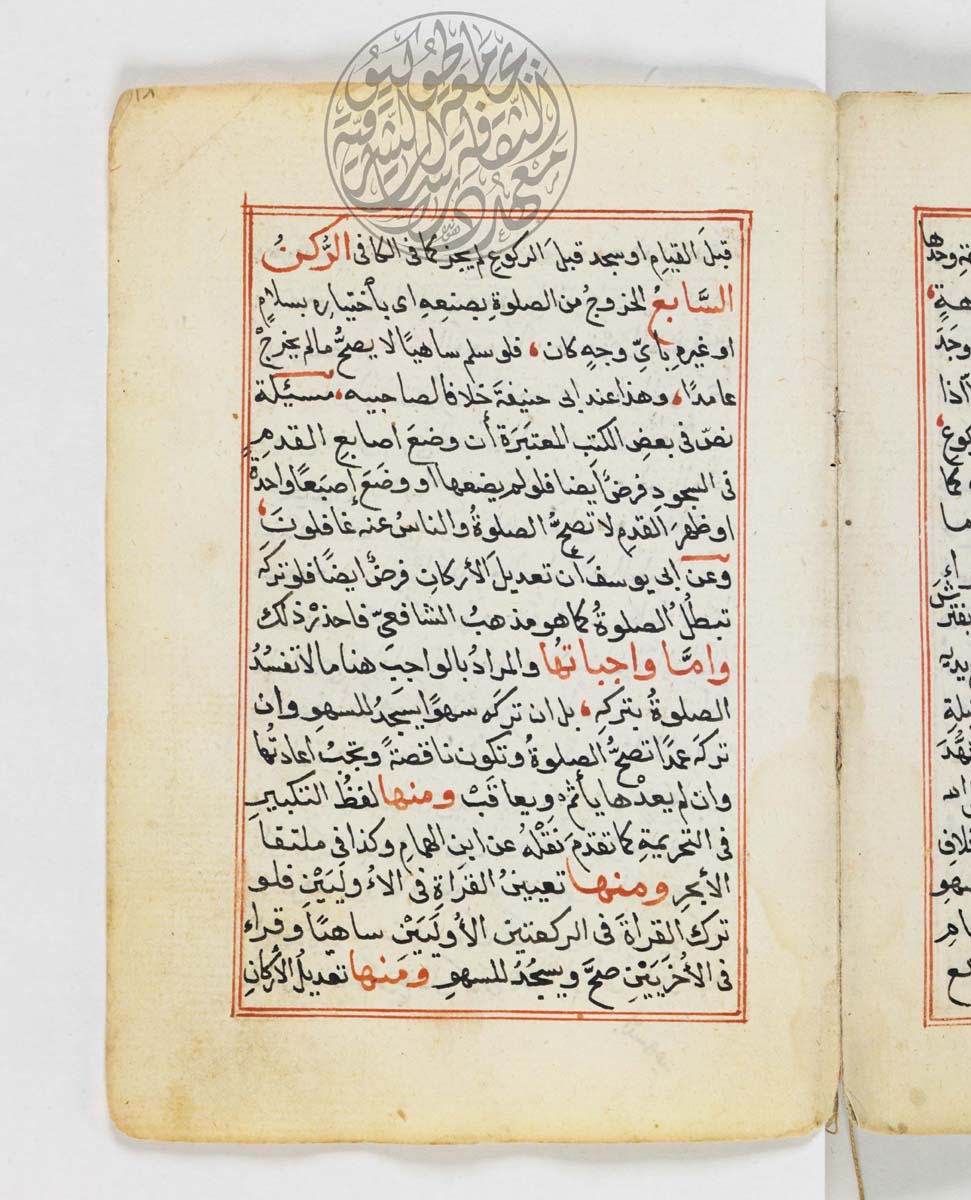 ١٨
قبلَ القيامِ او سجد قبلَ الركوعِ لم يجز كما فى الكافى الرُّكنُ
السَّابعُ الخروجُ من الصلوةِ بصنعِهِ اى باختيارِه بسلامٍ
او غيرِهِ باىِّ وجهٍ كان، فلو سلم ساهيًا لا يصحُّ مالم يخرجْ
عامدًا، وهذا عند ابى حنيفةَ خلافا لصاحبيه، مسئلة
نصّ فى بعضِ الكتبِ المعتبَرَة أن وضعَ اصابعِ القدمِ
فى السجودِ فرضٌ ايضا فلو لم يضعها او وضَعَ إصبَعًا واحدةً
او ظهرَ القدمِ لا تصحُّ الصلوةُ والناسُ عنه غافلونَ،
وعن ابى يوسفَ أن تعديلَ الأركانِ فرضٌ ايضًا فلو تركَه
تبطلُ الصلوةُ كما هو مذهبُ الشافعىِّ فاحذرْ ذلك
وامَّا واجباتها والمرادُ بالواجبِ هنا ما لا تفسُدُ
الصلوةُ بتركِهِ، بل ان تركَه سهوًا يسجدُ للسهوِ وان
تركَه عمدًا تصحُّ الصلوةُ وتكون ناقصةً ويجبُ اعادتُها
وان لم يعدْها يأثمْ ويعاقبْ ومنها لفظُ التكبيرِ
فى التحريمةِ كما تقدمَ نقْلُه عن ابنِ الهمامِ وكذا فى ملتقا
الأبحرِ ومنها تعيينُ القراةِ فى الاُولَيَيْنِ فلو
تركَ القراةَ فى الركعتينِ الأُولَيَيْنِ ساهيًا وقراء
فى الأُخرَيَيْنِ صحَّ ويسجُدُ للسهوِ ومنها تعديلُ الأركانِ